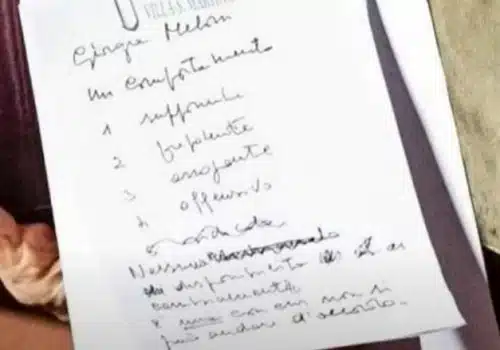 VILLA S. MARTINO
Giorgia Meloni
un comportamento
1 supponente
2 prepotente
3 arrogante
4 offensivo
Nessuna
disponibilità ai
cambiamenti
è una con cui non si
può andare d'accordo.